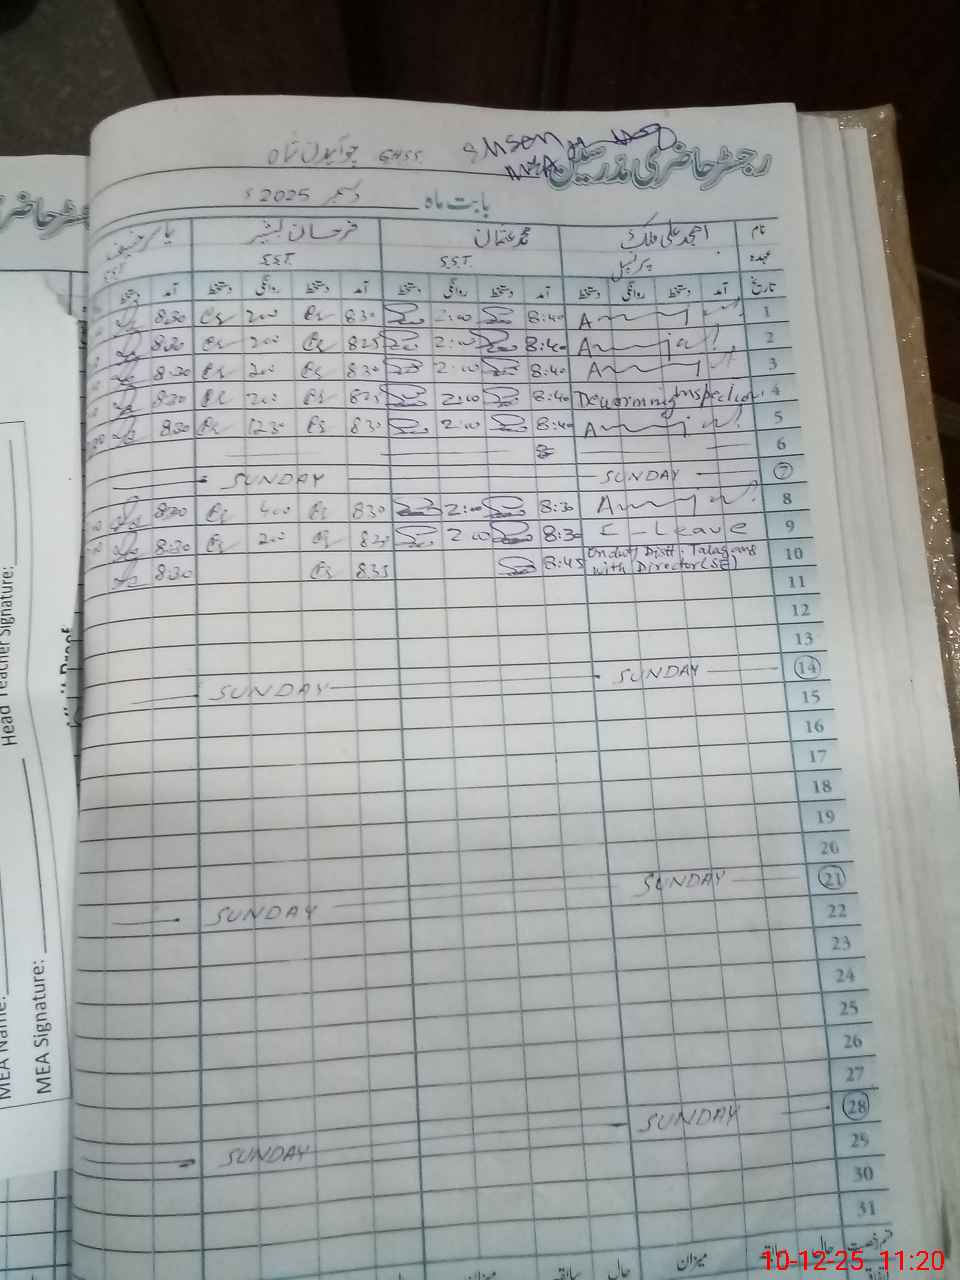 Ehsen
GHSS
MEA
رجسٹر حاضری مدرسین
بابت ماہ دسمبر 2025ء
نام امجد علی ملک محمد عثمان فرحان بشیر یاسر
عہدہ پرنسپل S.S.T. S.S.T. S.S.T.
تاریخ آمد دستخط روانگی دستخط آمد دستخط روانگی دستخط آمد دستخط روانگی دستخط آمد دستخط
1 8:40 2:00 830 200 830
2 8:40 2:00 825 200 830
3 8:40 2:00 830 200 830
4 Deworming Inspection 8:40 2:00 825 200 830
5 8:40 2:00 830 1230 830
6
7 SUNDAY SUNDAY
8 8:30 2:00 830 400 830
9 E-Leave 8:30 200 830 200 8:30
10 On duty Distt: Talagang with Director (SE) 8:45 835 8:30
11
12
13
14 SUNDAY SUNDAY
15
16
17
18
19
20
21 SUNDAY SUNDAY
22
23
24
25
26
27
28 SUNDAY SUNDAY
29
30
31
رخصت حال سابقہ میزان حال سابقہ میزان
Head Teacher Signature:
MEA Name:
MEA Signature:
10-12-25 11:20